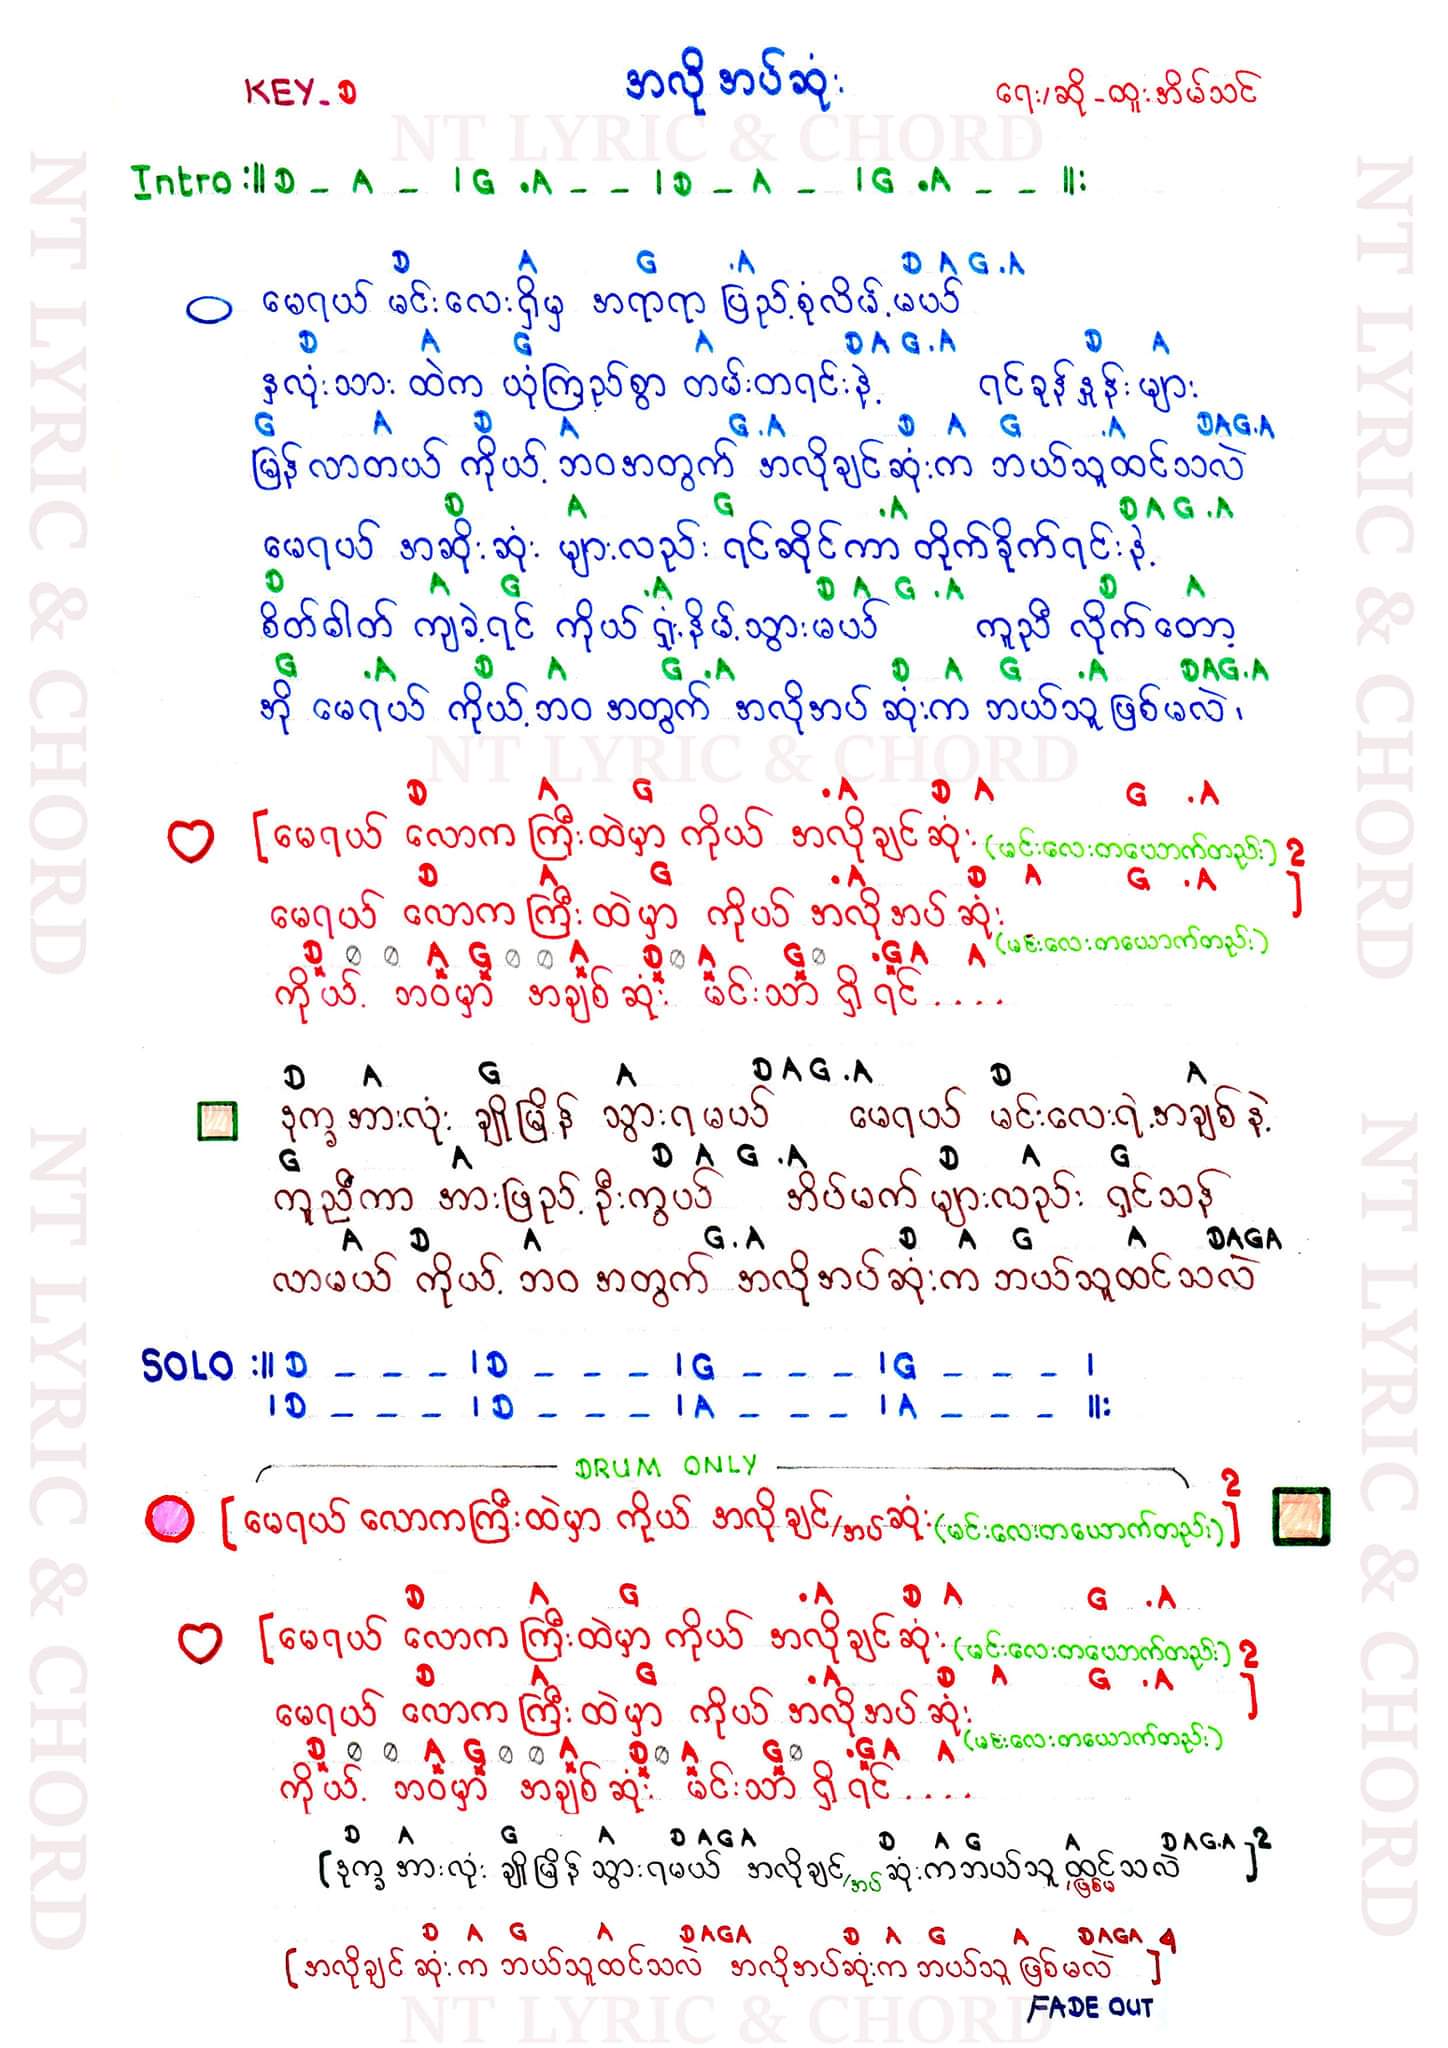 KEY - D
အလိုအပ်ဆုံး
ရေး/ဆို - ထူးအိမ်သင်
NT LYRIC & CHORD
Intro :|| D _ A _ | G .A _ _ | D _ A _ | G .A _ _ ||:
D A G .A D A G .A
မေရယ် မင်းလေးရှိမှ အရာရာ ပြည့်စုံလိမ့်မယ်
D A G A D A G .A D A
နှလုံးသား ထဲက ယုံကြည်စွာ တမ်းတရင်းနဲ့ ရင်ခုန်နှုန်းများ
G A D A G .A D A G .A DAG.A
မြန်လာတယ် ကိုယ့်ဘဝအတွက် အလိုချင်ဆုံးက ဘယ်သူထင်သလဲ
D A G .A D A G .A
မေရယ် အဆိုးဆုံး များလည်း ရင်ဆိုင်ကာ တိုက်ခိုက်ရင်းနဲ့
D A G .A D A G .A D A
စိတ်ဓါတ် ကျခဲ့ရင် ကိုယ် ရှုံးနိမ့်သွားမယ် ကူညီ လိုက်တော့
G .A D A G .A D A G .A DAG.A
အို မေရယ် ကိုယ့်ဘဝ အတွက် အလိုအပ် ဆုံးက ဘယ်သူ ဖြစ်မလဲ၊
NT LYRIC & CHORD
D A G .A D A G .A
[မေရယ် လောကကြီးထဲမှာ ကိုယ် အလိုချင်ဆုံး (မင်းလေးတယောက်တည်း) 2
D A G .A D A G .A ]
မေရယ် လောကကြီးထဲမှာ ကိုယ် အလိုအပ်ဆုံး (မင်းလေးတယောက်တည်း)
D ∅ ∅ A G ∅ ∅ A D ∅ A G ∅ .G A A
ကိုယ့် ဘဝမှာ အချစ်ဆုံး မင်းသာ ရှိရင်....
D A G A D A G .A D A
ဒုက္ခအားလုံး ချိုမြိန် သွားရမယ် မေရယ် မင်းလေးရဲ့အချစ်နဲ့
G A D A G .A D A G
ကူညီကာ အားဖြည့်ဦးကွယ် အိပ်မက်များလည်း ရှင်သန်
A D A G.A D A G A DAGA
လာမယ် ကိုယ့် ဘဝ အတွက် အလိုအပ်ဆုံးက ဘယ်သူထင်သလဲ
SOLO :|| D _ _ _ | D _ _ _ | G _ _ _ | G _ _ _ |
| D _ _ _ | D _ _ _ | A _ _ _ | A _ _ _ ||:
DRUM ONLY
[မေရယ် လောကကြီးထဲမှာ ကိုယ် အလိုချင်/အပ်ဆုံး (မင်းလေးတယောက်တည်း) ]2
D A G .A D A G .A
[မေရယ် လောကကြီးထဲမှာ ကိုယ် အလိုချင်ဆုံး (မင်းလေးတယောက်တည်း) 2
D A G .A D A G .A ]
မေရယ် လောကကြီးထဲမှာ ကိုယ် အလိုအပ်ဆုံး (မင်းလေးတယောက်တည်း)
D ∅ ∅ A G ∅ ∅ A D ∅ A G ∅ .G A A
ကိုယ့် ဘဝမှာ အချစ်ဆုံး မင်းသာ ရှိရင်....
D A G A D AGA D A G A DAG.A
[ဒုက္ခအားလုံး ချိုမြိန် သွားရမယ် အလိုချင်/အပ်ဆုံးကဘယ်သူ ထင်/ဖြစ်မသလဲ ]2
D A G A DAGA D A G A DAGA
[အလိုချင်ဆုံးက ဘယ်သူထင်သလဲ အလိုအပ်ဆုံးက ဘယ်သူ ဖြစ်မလဲ ]4
FADE OUT
NT LYRIC & CHORD
NT LYRIC & CHORD
NT LYRIC & CHORD
NT LYRIC & CHORD
NT LYRIC & CHORD